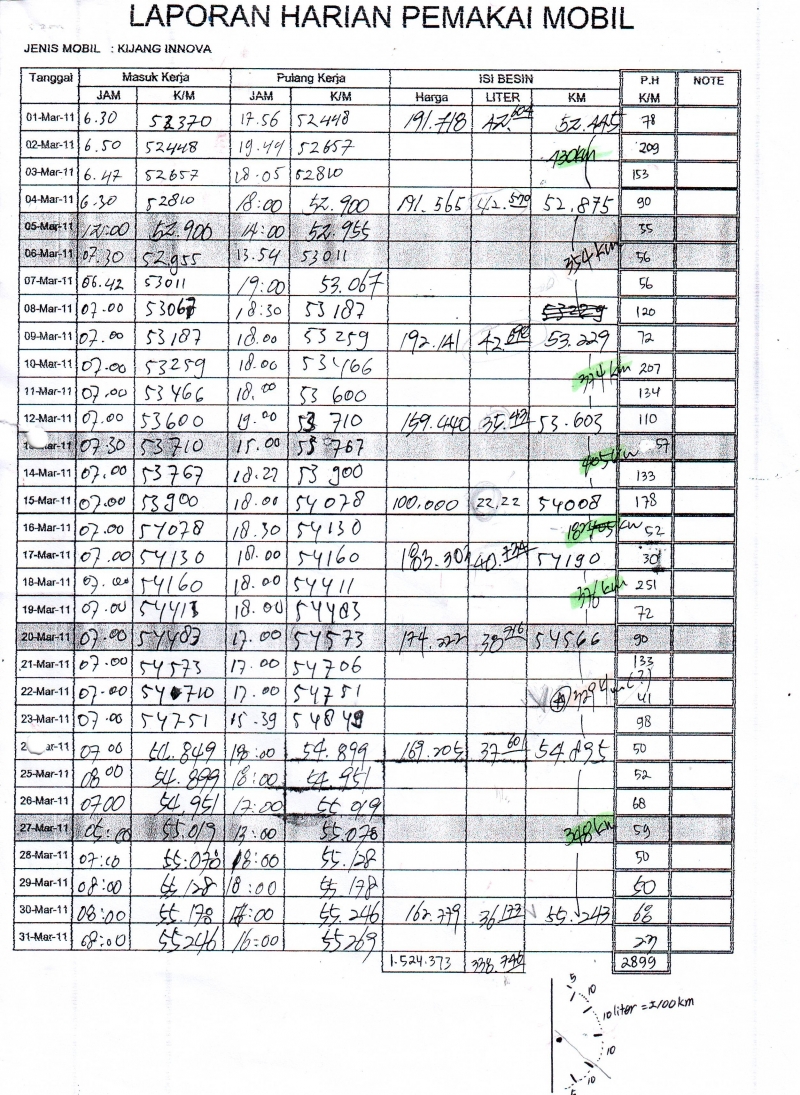 LAPORAN HARIAN PEMAKAI MOBIL
JENIS MOBIL : KIJANG INNOVA
Tanggal Masuk Kerja Pulang Kerja ISI BESIN P.H NOTE
JAM K/M JAM K/M Harga LITER KM K/M
01-Mar-11 6.30 52370 17.56 52448 191.718 42.604 52.445 78
02-Mar-11 6.50 52448 19.44 52657 430km 209
03-Mar-11 6.47 52657 18.05 52810 153
04-Mar-11 6.30 52810 18:00 52.900 191.565 42.570 52.875 90
05-Mar-11 12:00 52.900 14:00 52.955 35
06-Mar-11 07.30 52.955 13.54 53011 354km 56
07-Mar-11 06.42 53011 19:00 53.067 56
08-Mar-11 07.00 53067 18:30 53187 53229 120
09-Mar-11 07.00 53187 18.00 53259 192.141 42 53.229 72
10-Mar-11 07.00 53259 18.00 53466 374km 207
11-Mar-11 07.00 53466 18.00 53600 134
12-Mar-11 07.00 53600 19.00 53710 159.440 35.43 53.603 110
-Mar-11 07.30 53710 15.00 53767 57
14-Mar-11 07.00 53767 18.27 53900 405km 133
15-Mar-11 07.00 53900 18.00 54078 100.000 22.22 54008 178
16-Mar-11 07.00 54078 18.30 54130 km 52
17-Mar-11 07.00 54130 18.00 54160 183.303 40.734 54190 30
18-Mar-11 07.00 54160 18.00 54411 376km 251
19-Mar-11 07.00 54411 18.00 54483 72
20-Mar-11 07.00 54483 17.00 54573 174.222 38.716 54566 90
21-Mar-11 07.00 54573 17.00 54706 133
22-Mar-11 07.00 54710 17.00 54751 (?) 41
23-Mar-11 07.00 54751 15.39 54849 98
ar-11 07 00 54.849 18:00 54.899 169.205 37.601 54.895 50
25-Mar-11 08 00 54.899 18:00 54.951 52
26-Mar-11 07 00 54.951 17:00 55.019 68
27-Mar-11 05:00 55.019 13:00 55.078 348km 59
28-Mar-11 07:00 55.078 18:00 55.128 50
29-Mar-11 08:00 55.128 18:00 55.178 50
30-Mar-11 08:00 55.178 18:00 55.246 162.779 36.173 55.243 68
31-Mar-11 08:00 55246 16:00 55269 23
1.524.373 338.740 2899
5
10
10 liter = ±100 km
10
10
5